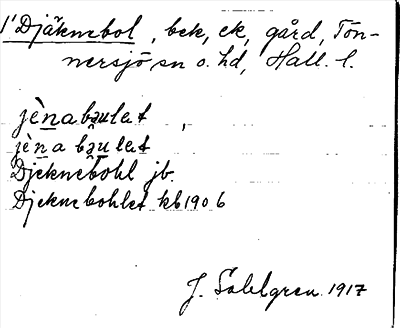 1/ Djäknebol, bek, ek, gård, Tön-
nersjö sn o. hd, Hall. l.
jènabəulət,
jèna bəulət
Djeknebohl jb.
Djeknebohlet kb 1906
J. Sahlgren 1917